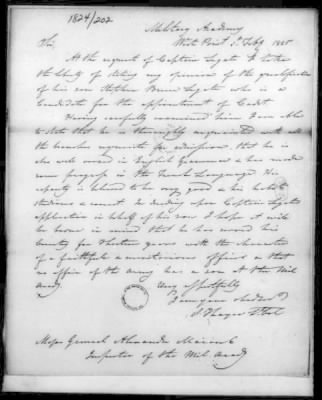 1824/202
Military Academy
West Point 5. Feby 1825
Sir,
At the request of Captain Legate I take
the liberty of stating my opinion of the qualifications
of his son Stephen Bruce Legate who is a
Candidate for the appointment of Cadet.
Having carefully examined him I am able
to state that he is thoroughly acquainted with all
the branches requisite for admission. That he is
also well versed in English Grammar & has made
some progress in the French Language. His
capacity is believed to be very good & his habits
studious & correct. In deciding upon Captain Legate
application in behalf of his son I hope it will
be borne in mind that he has served his
country for thirteen years with the character
of a faithful & meritorious officer & that
no officer of the Army has a son at the Mil
Acad.
Very respectfully
I am your obedser.t
S. Thayer Lt. Col.
Major General Alexander Macomb
Inspector of the Mil Acad.